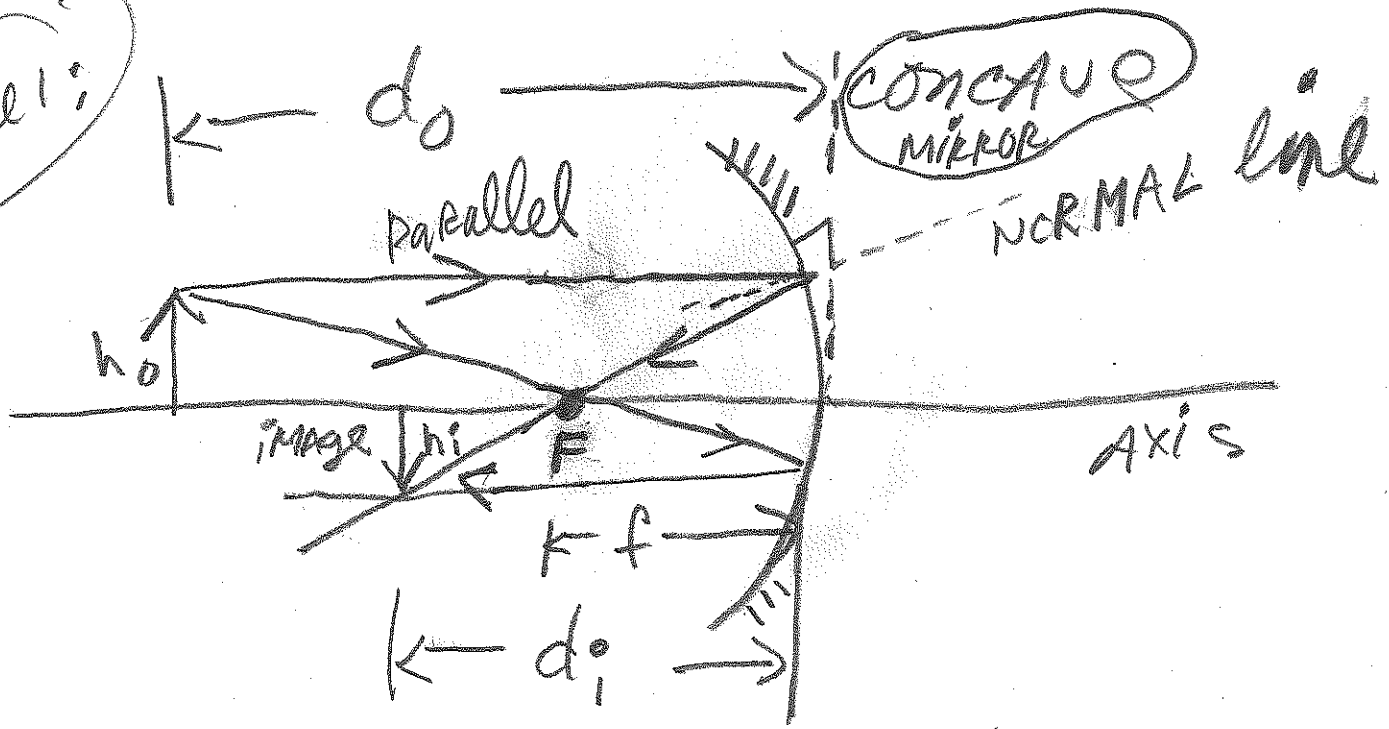 el:
d₀
CONCAVE
MIRROR
NORMAL line
parallel
h₀
image
hi
F
AXIS
f
di